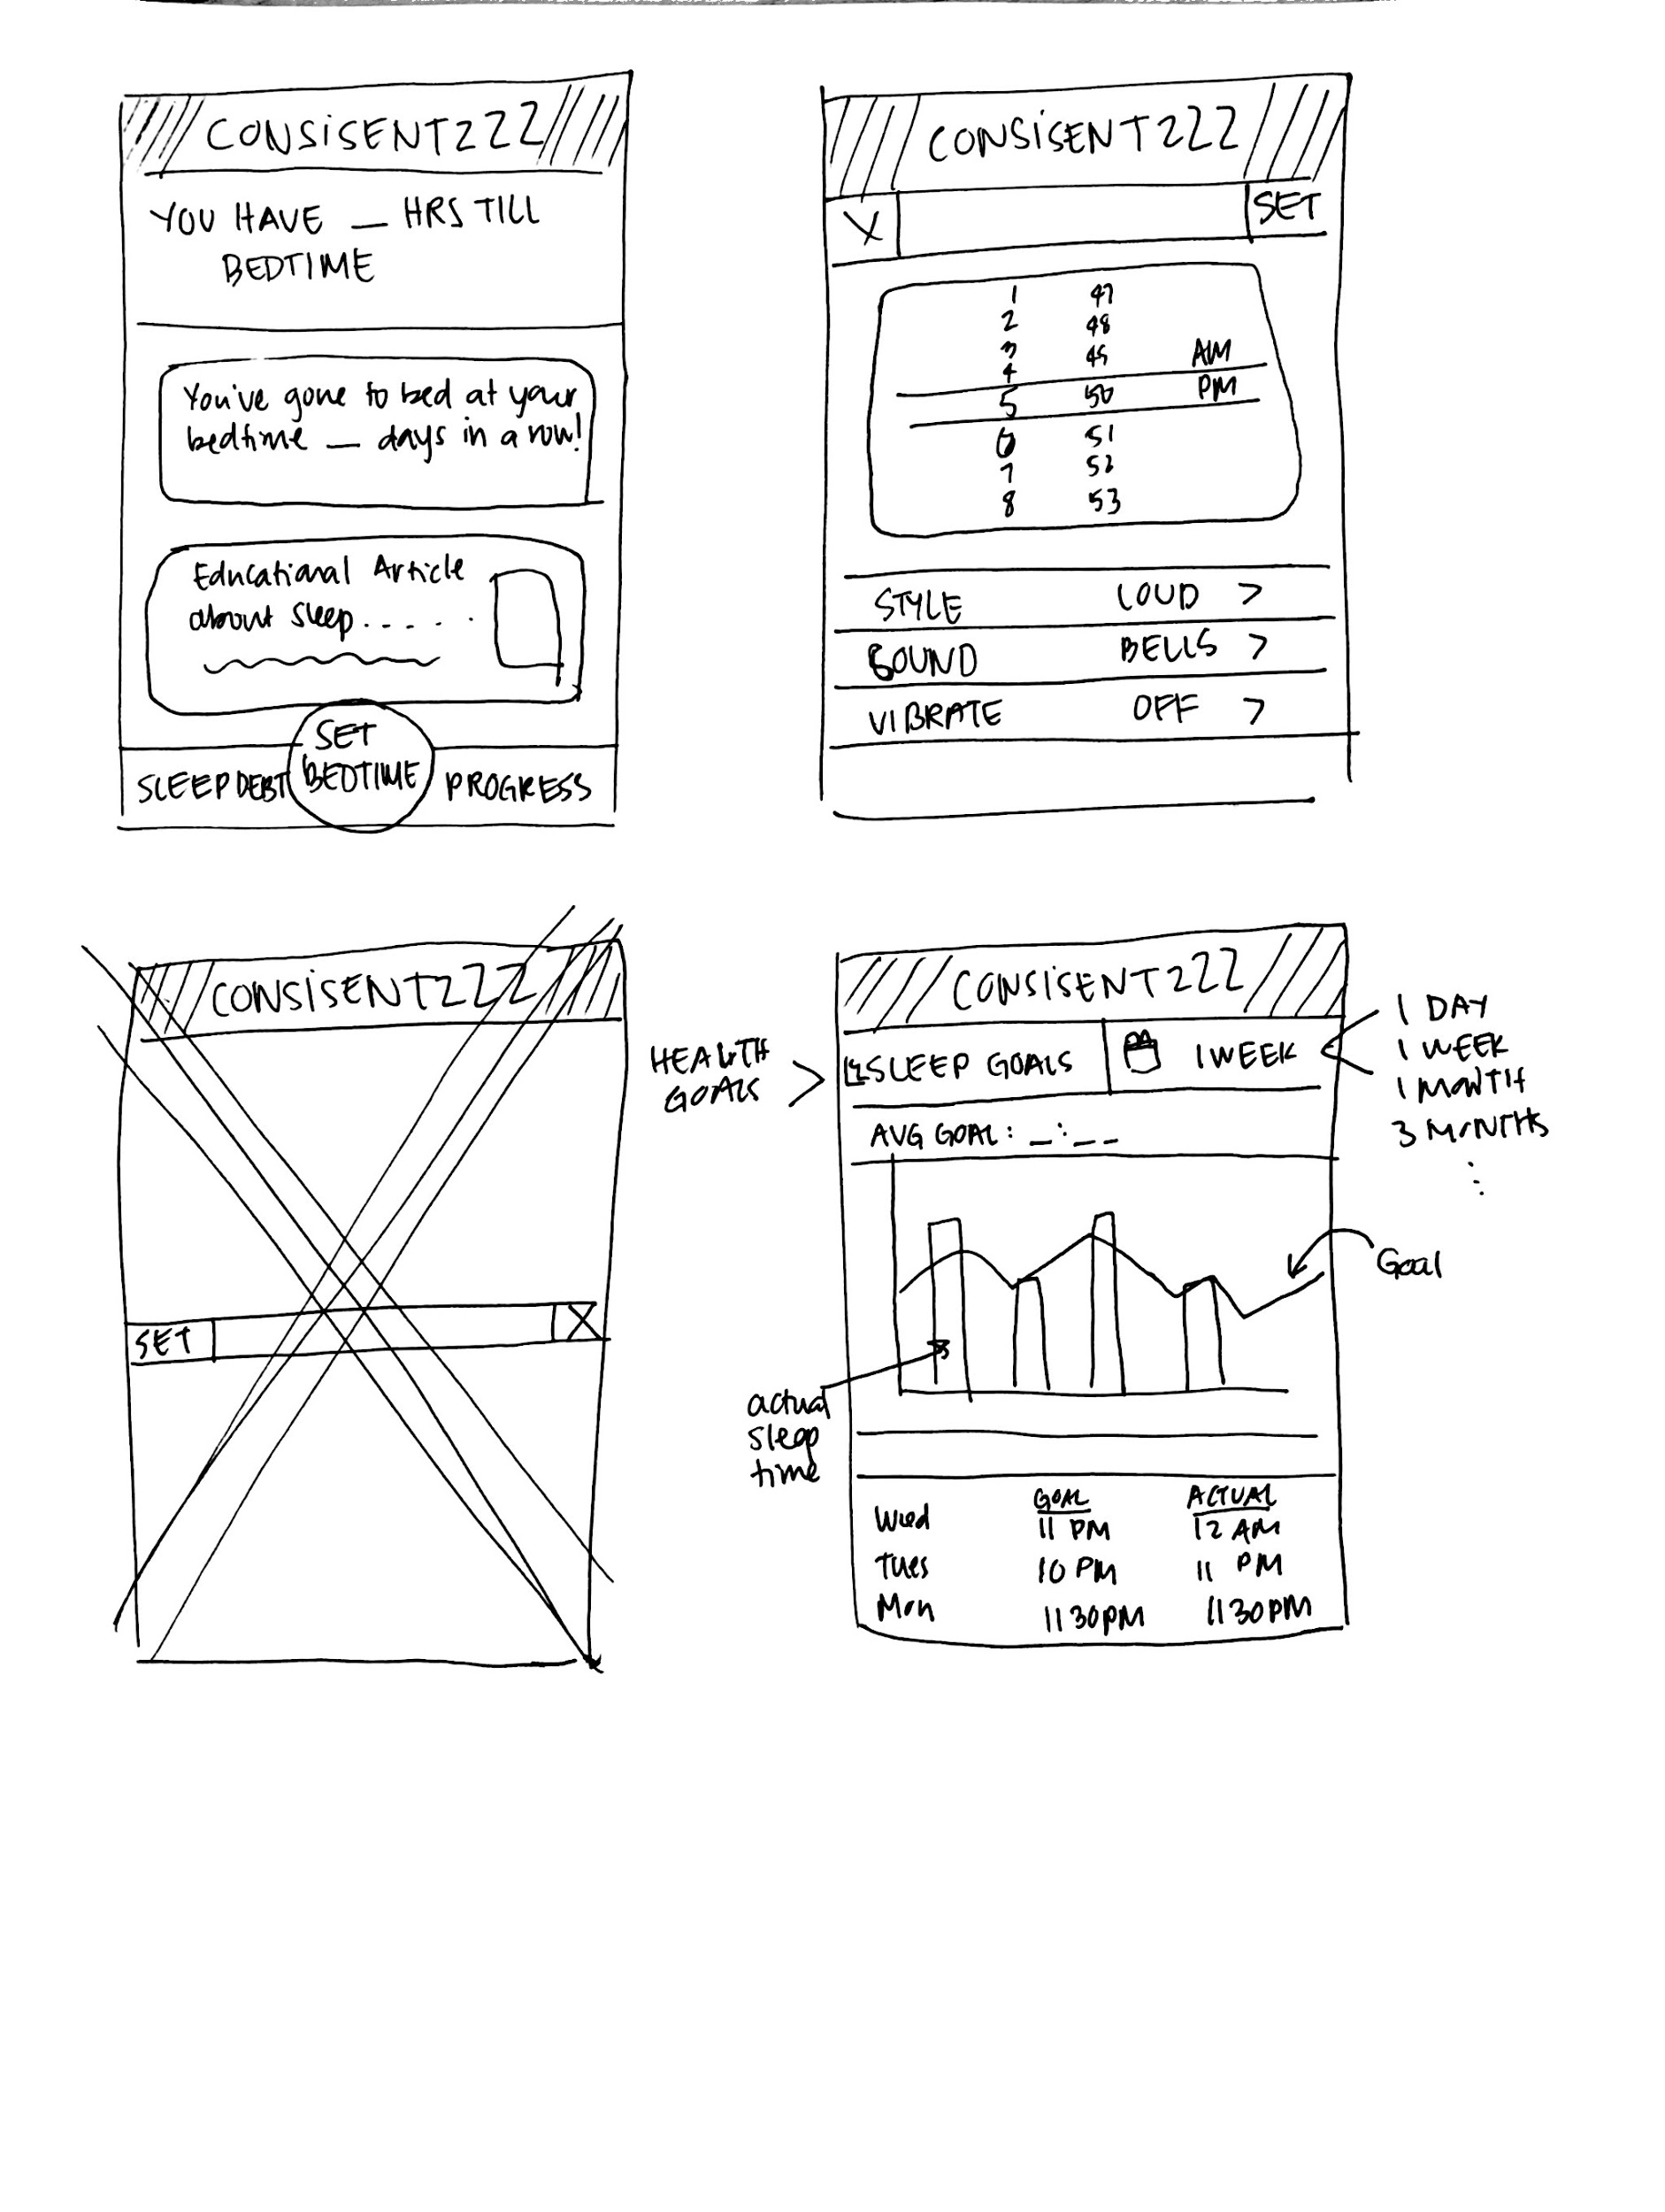 CONSISENTZZZ
YOU HAVE _ HRS TILL
BEDTIME
You've gone to bed at your
bedtime _ days in a row!
Educational Article
about sleep.....
SET
BEDTIME
SLEEP DEBT
PROGRESS
CONSISENTZZZ
X
SET
1 47
2 48
3 49 AM
4
5 50 PM
6 51
7 52
8 53
STYLE LOUD >
SOUND BELLS >
VIBRATE OFF >
CONSISENTZZZ
SET
X
CONSISENTZZZ
HEALTH
GOALS
SLEEP GOALS
1 WEEK
1 DAY
1 WEEK
1 MONTH
3 MONTHS
AVG GOAL: _:_ _
Goal
actual
sleep
time
GOAL ACTUAL
Wed 11 PM 12 AM
Tues 10 PM 11 PM
Mon 11 30PM 11 30PM